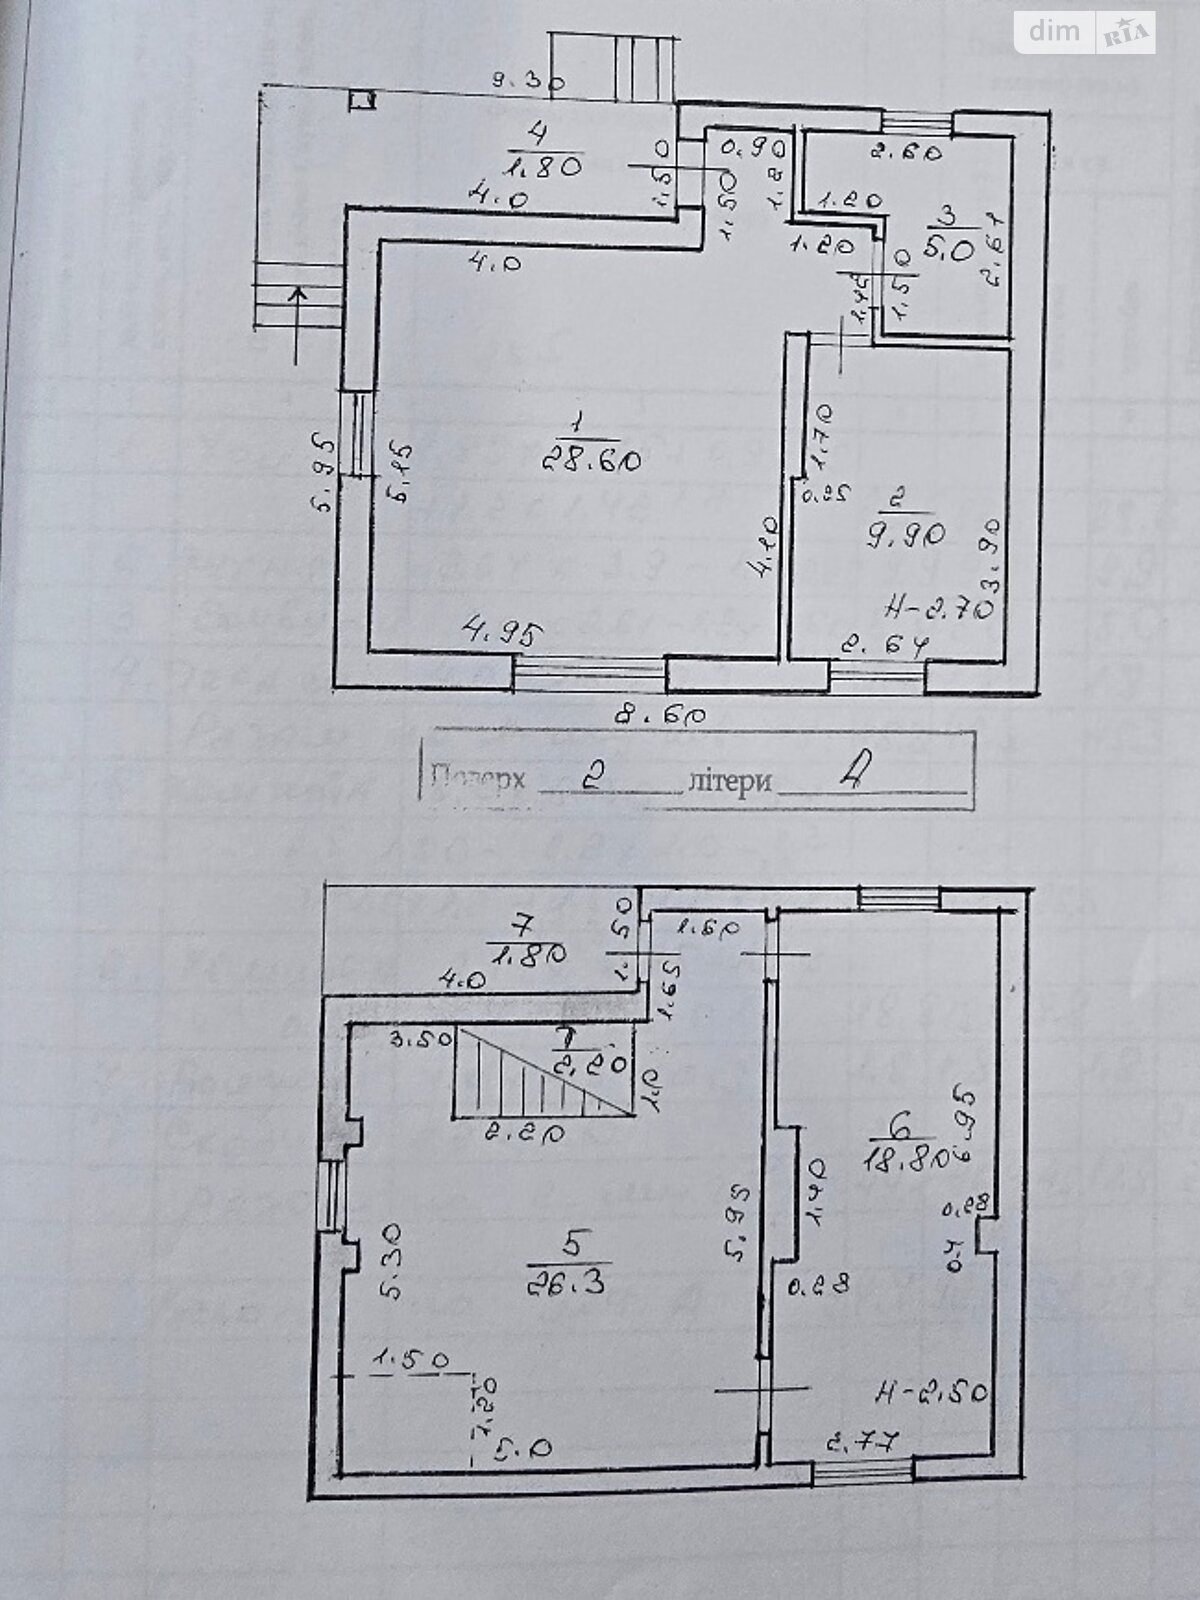 dim RIA
9.30
4
1.80
4.0
1.50
0.90
1.50
1.20
2.60
1.20
3
5.0
2.61
4.0
1.20
1.45
1.50
1
28.60
5.95
5.15
1.70
0.25
2
9.90
4.10
3.90
H-2.70
4.95
2.64
8.60
Поверх 2 літери А
7
1.80
1.50
1.60
4.0
1.65
3.50
2.20
1.0
2.20
6
18.80
6.95
1.40
5.95
0.28
0.4
5
26.3
5.30
0.28
1.50
1.20
5.0
H-2.50
2.77